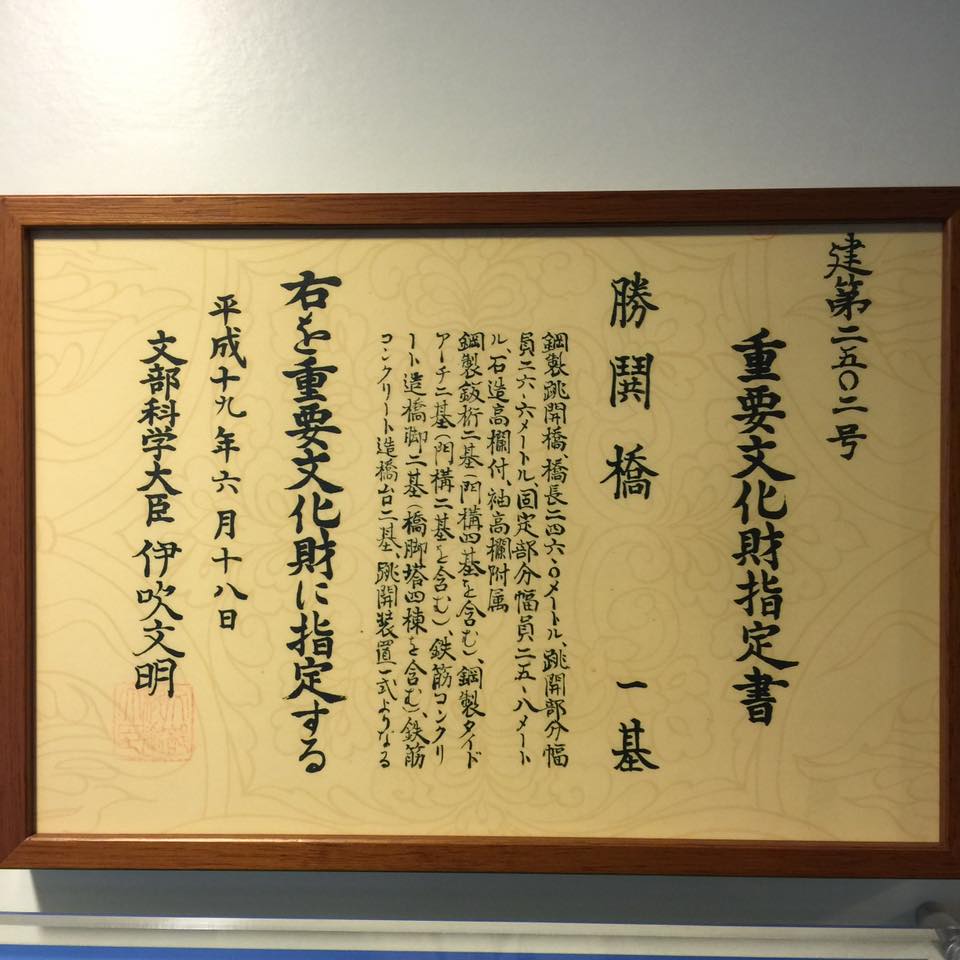 建第二五〇二号
重要文化財指定書
勝鬨橋 一基
鋼製跳開橋、橋長二四六・〇メートル、跳開部分幅
員二六・六メートル、固定部分幅員二五・八メート
ル、石造高欄付、袖高欄附属
鋼製鈑桁二基(門構四基を含む)、鋼製タイド
アーチ二基(門構二基を含む)、鉄筋コンクリ
ート造橋脚二基(橋脚塔四棟を含む)、鉄筋
コンクリート造橋台二基、跳開装置一式よりなる
右を重要文化財に指定する
平成十九年六月十八日
文部科学大臣 伊吹文明